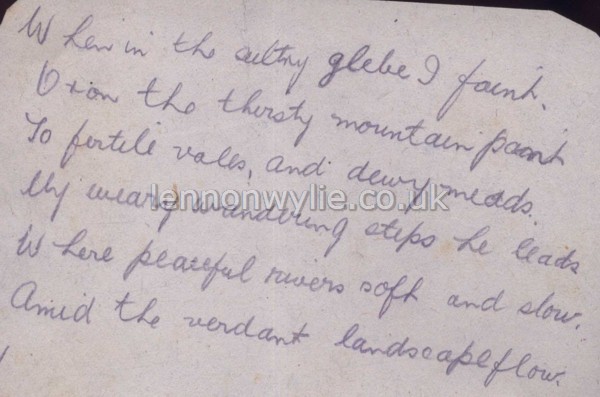 When in the sultry glebe I faint,
Or on the thirsty mountain pant
To fertile vales, and dewy meads.
My weary wandring steps he leads
Where peaceful rivers soft and slow,
Amid the verdant landscape flow.
lennonwylie.co.uk